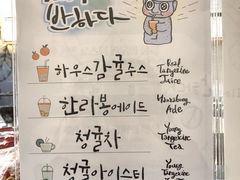 반하다
하우스감귤주스
Real
Tangerine
Juice
한라봉에이드
Hallabong
Ade
청귤차
Young
Tangerine
Tea
청귤아이스티
Young
Tangerine